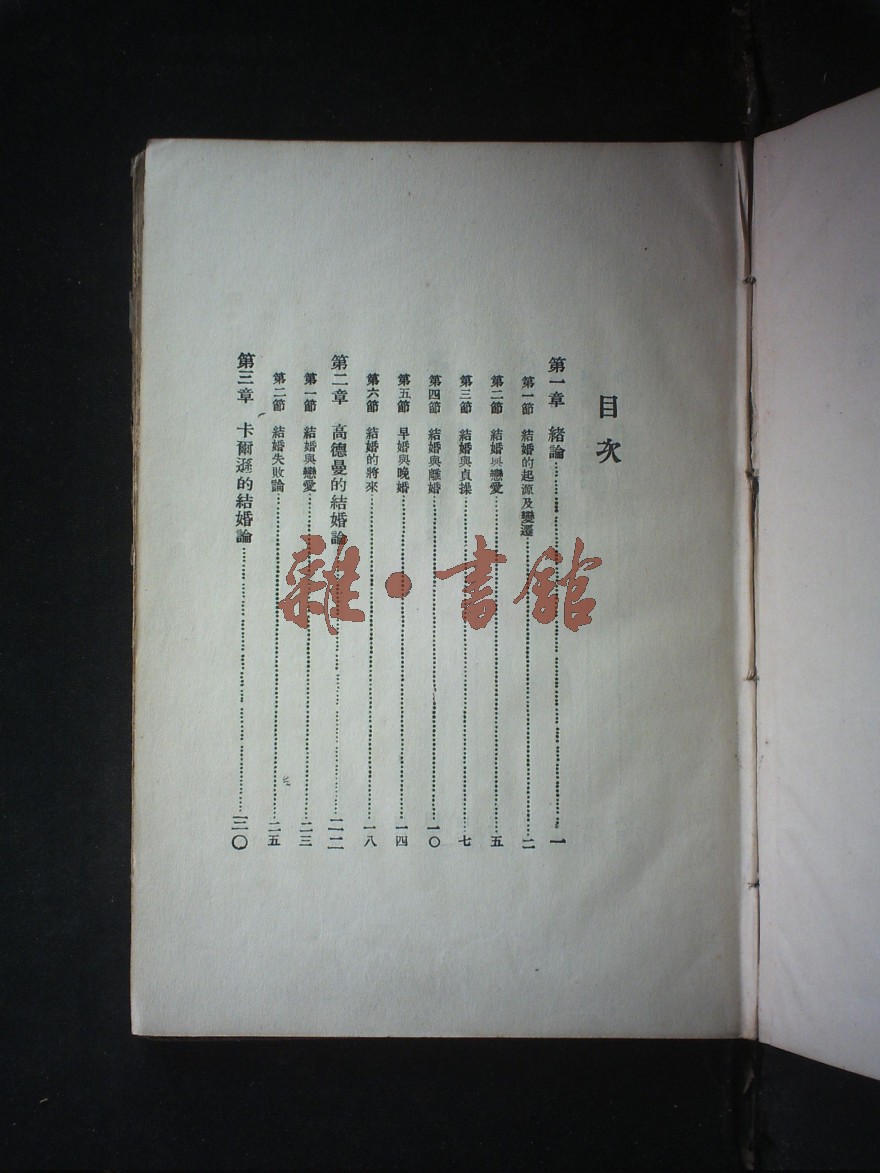 目次
第一章 緒論……一
第一節 結婚的起源及變遷……二
第二節 結婚與戀愛……五
第三節 結婚與貞操……七
第四節 結婚與離婚……一〇
第五節 早婚與晚婚……一四
第六節 結婚的將來……一八
第二章 高德曼的結婚論……二二
第一節 結婚與戀愛……二三
第二節 結婚失敗論……二五
第三章 卡爾遜的結婚論……三〇
雜·書館